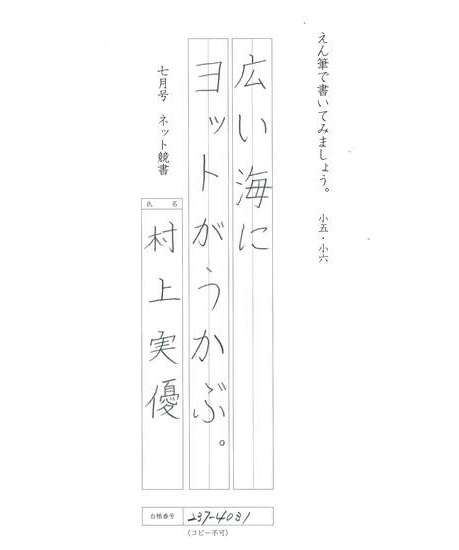 えん筆で書いてみましょう。 小五・小六
広い海に
ヨットがうかぶ。
七月号 ネット競書
氏名
村上実優
合格番号 237-4031
(コピー不可)